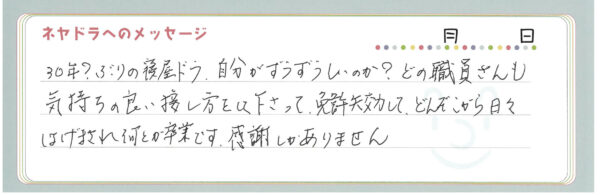 ネヤドラへのメッセージ
月 日
30年?ぶりの寝屋ドラ、自分がずうずうしいのか?どの職員さんも
気持ちの良い接し方を以下さって、免許失効して、どんぞこから日々
はげまされ何とか卒業です。感謝しかありません